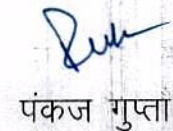 पंकज गुप्ता